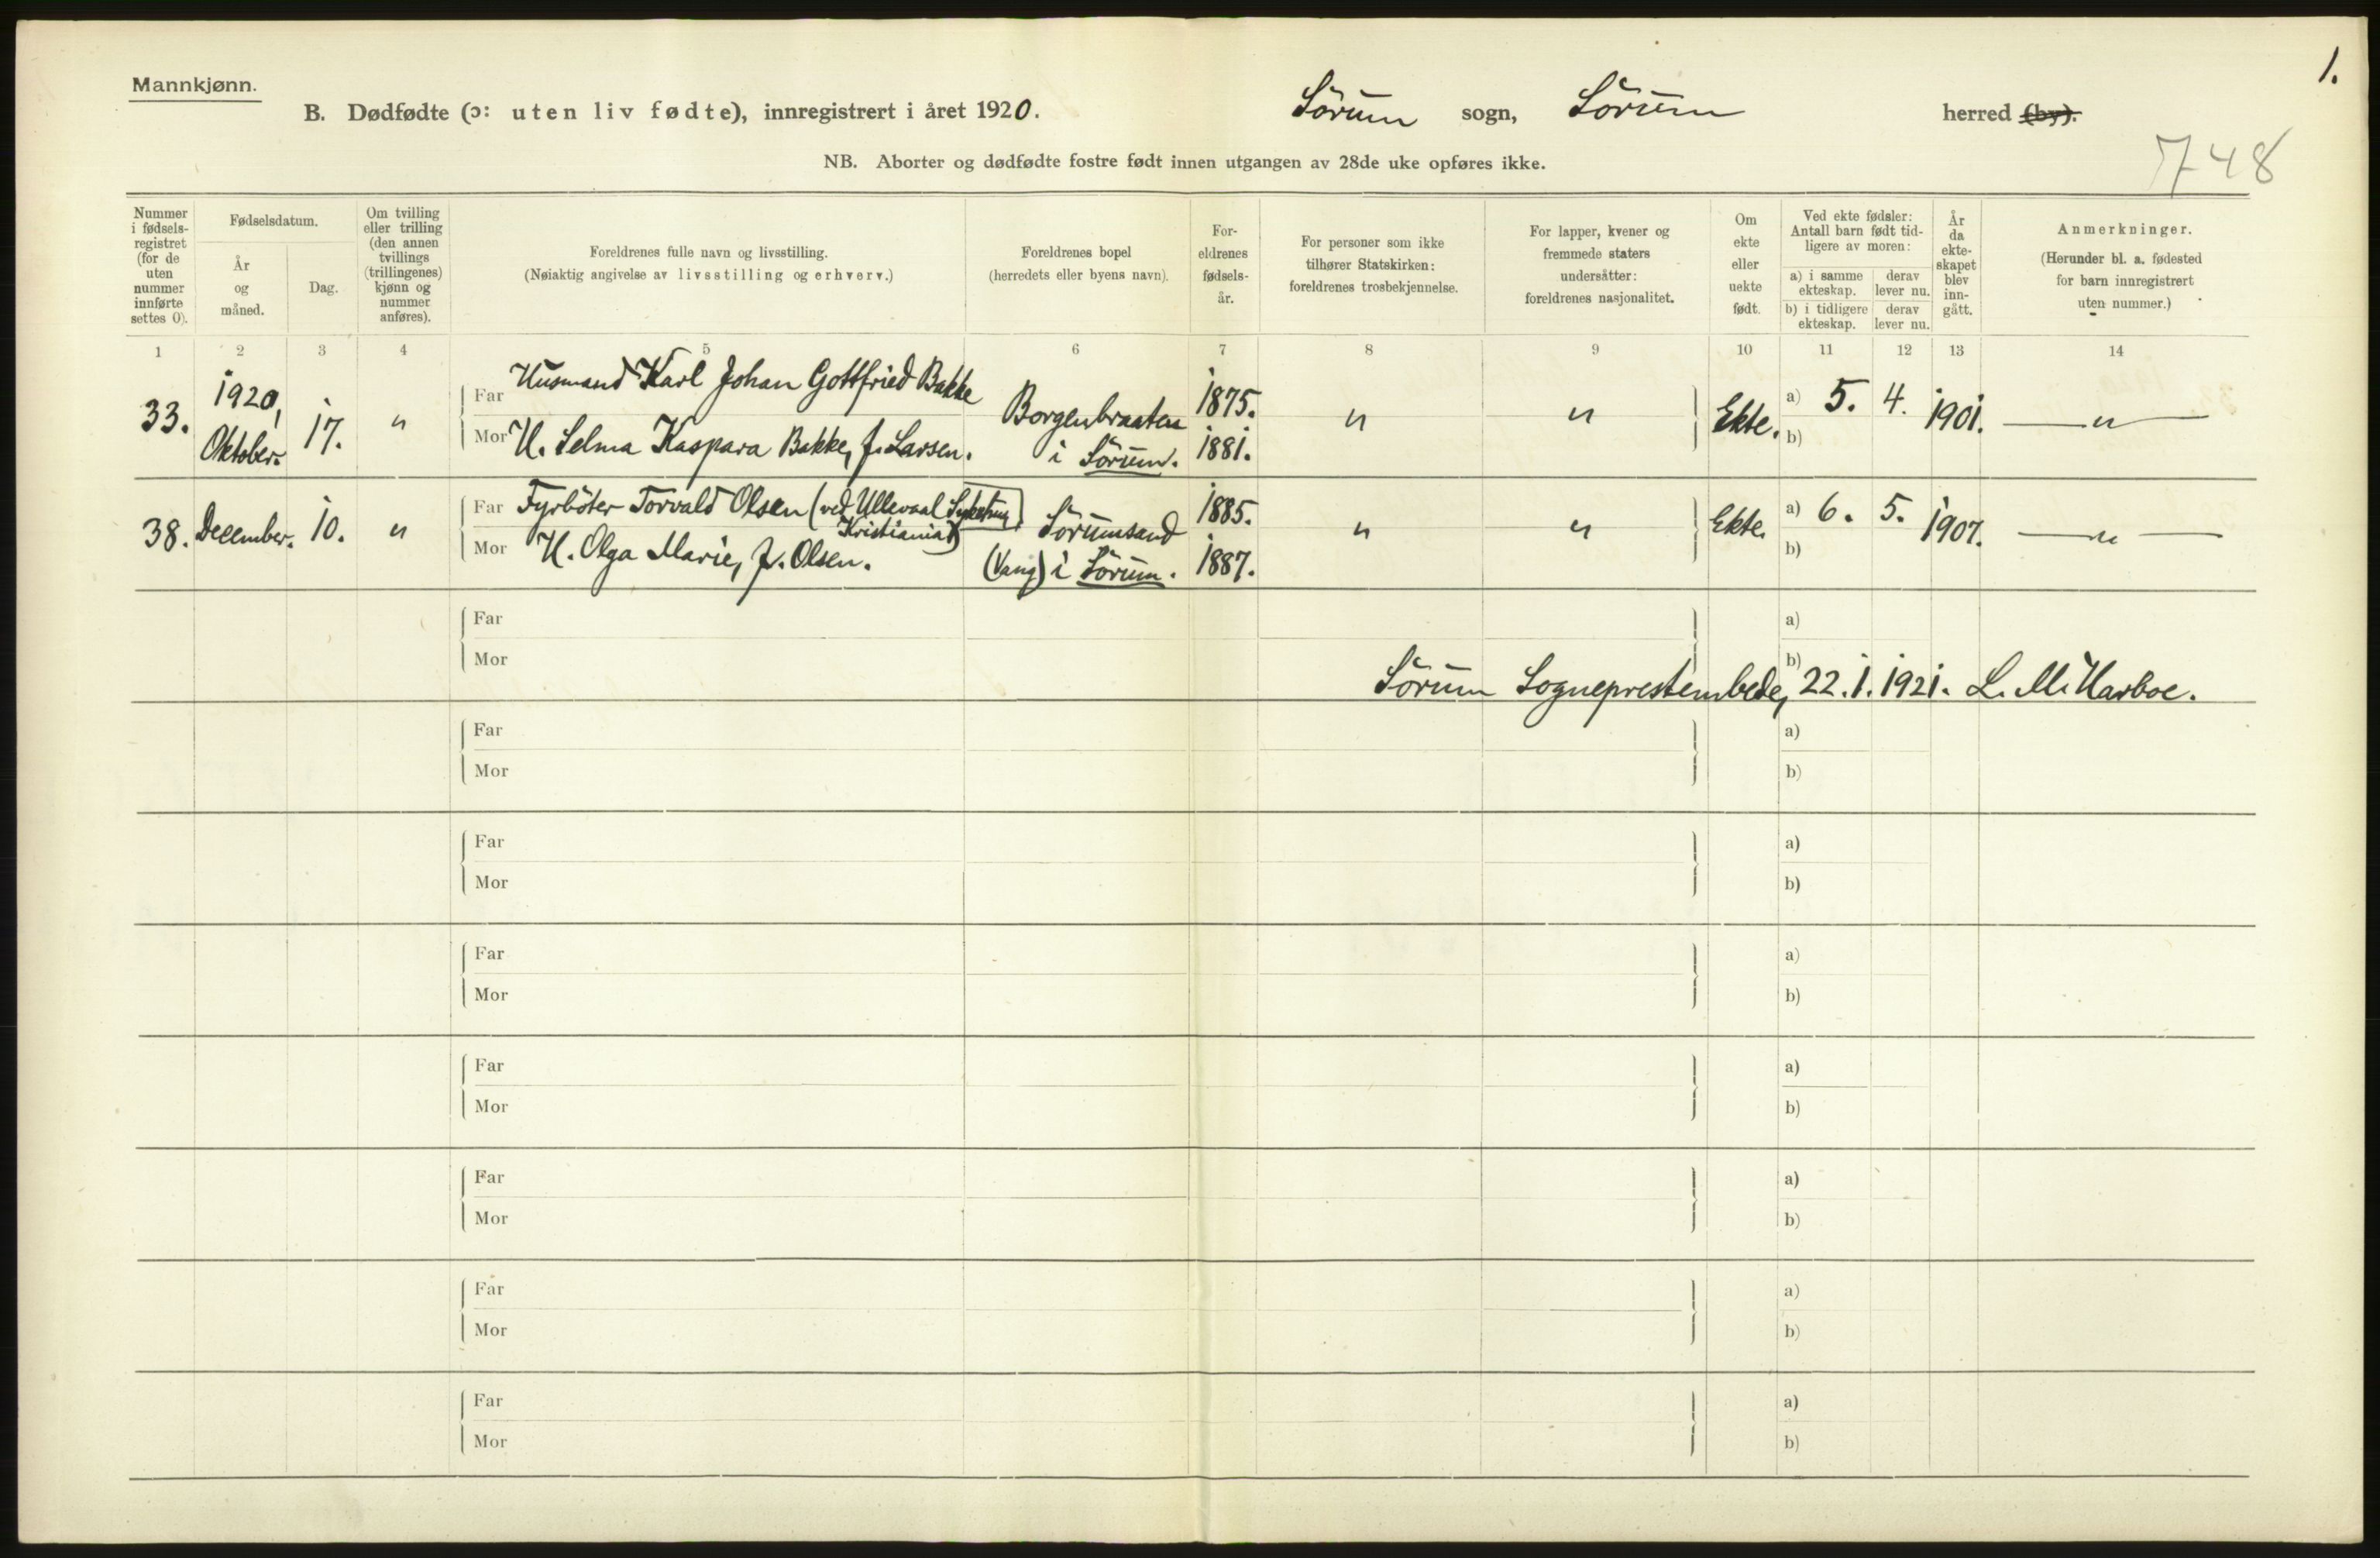 1.
Mannkjønn.
B. Dødfødte (ɔ: uten liv fødte), innregistrert i året 1920. Sörum sogn, Sörum herred (by).
748
NB. Aborter og dødfødte fostre født innen utgangen av 28de uke opføres ikke.
Nummer i fødselsregistret (for de uten nummer innførte settes 0).
Fødselsdatum.
År og måned.
Dag.
Om tvilling eller trilling (den annen tvillings (trillingenes) kjønn og nummer anføres).
Foreldrenes fulle navn og livsstilling.
(Nøiaktig angivelse av livsstilling og erhverv.)
Foreldrenes bopel
(herredets eller byens navn).
Foreldrenes fødselsår.
For personer som ikke tilhører Statskirken: foreldrenes trosbekjennelse.
For lapper, kvener og fremmede staters undersåtter: foreldrenes nasjonalitet.
Om ekte eller uekte født.
Ved ekte fødsler: Antall barn født tidligere av moren:
a) i samme ekteskap. derav lever nu.
b) i tidligere ekteskap. derav lever nu.
År da ekteskapet blev inngått.
Anmerkninger.
(Herunder bl. a. fødested for barn innregistrert uten nummer.)
1 2 3 4 5 6 7 8 9 10 11 12 13 14
33. 1920, Oktober. 17. "
Far Husmand Karl Johan Gottfried Bakke
Mor H. Selma Kaspara Bakke, f. Larsen.
Borgenbraaten i Sörum. 1875. 1881. " " Ekte. a) 5. 4. b) 1901. — " —
38. December. 10. "
Far Fyrböter Torvald Olsen (ved Ullevaal Sykehus, Kristiania)
Mor H. Olga Marie, f. Olsen.
Sörumsand (Vang) i Sörum. 1885. 1887. " " Ekte. a) 6. 5. b) 1907. — " —
Far a)
Mor b)
Sörum Sogneprestembede, 22.1.1921. L. M. Harboe.
Far a)
Mor b)
Far a)
Mor b)
Far a)
Mor b)
Far a)
Mor b)
Far a)
Mor b)
Far a)
Mor b)
Far a)
Mor b)